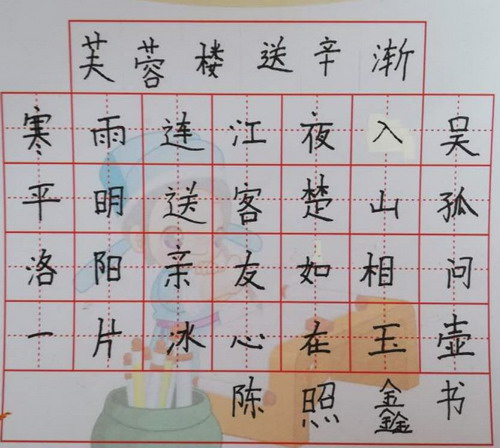 芙蓉楼送辛渐
寒雨连江夜入吴
平明送客楚山孤
洛阳亲友如相问
一片冰心在玉壶
陈照鑫书